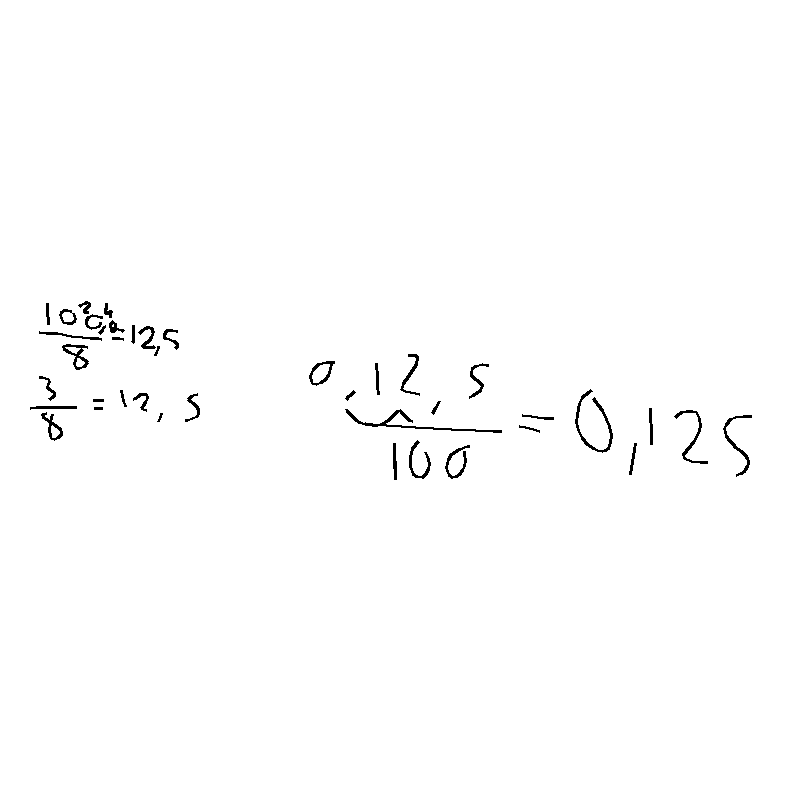 10²0⁴,⁰/8 = 12,5
3/8 = 12, 5
0,12,5/100 = 0,125